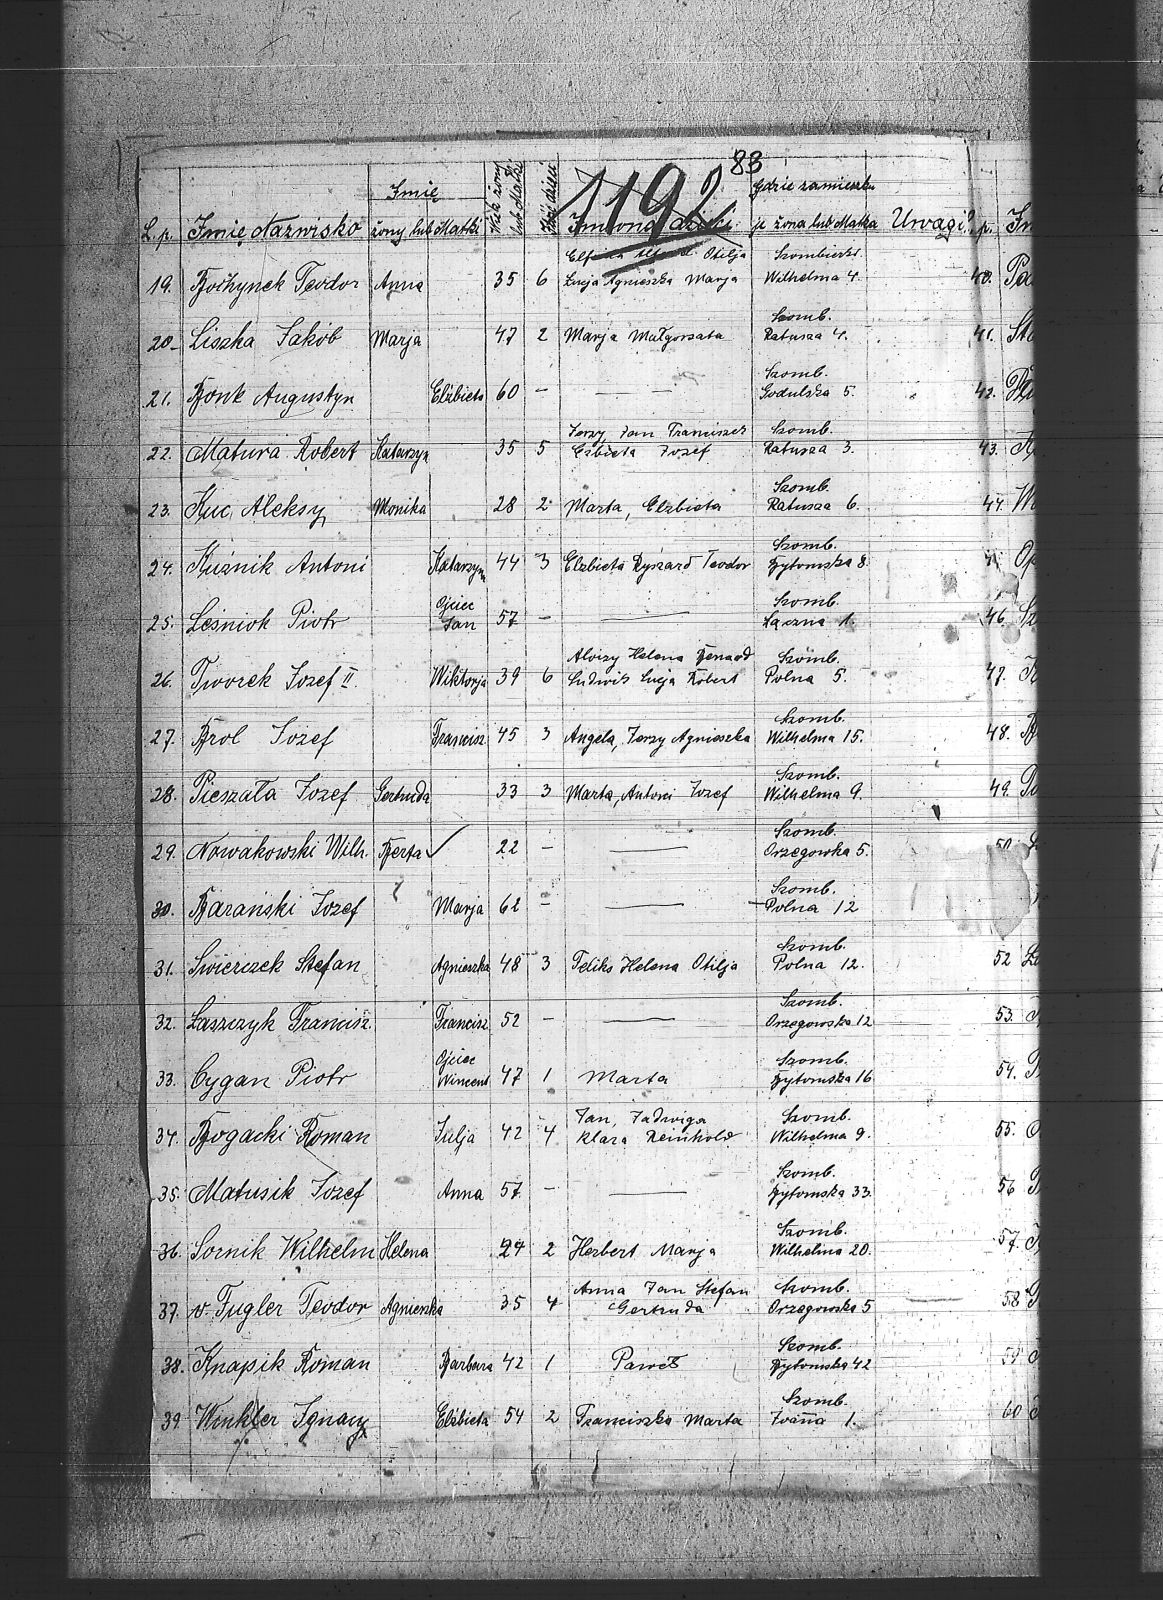 83
1192
L. p. Imię Nazwisko Imię żony lub Matki Wiek żony lub Matki Ilość dzieci Imiona dzieci Gdzie zamieszkuje żona lub Matka Uwagi
19. Bochynek Teodor Anna 35 6 Otilja Szombierki
Łucja Agnieszka Marja Wilhelma 4.
Szomb.
20 Liszka Jakób Marja 47 2 Marja Małgorzata Ratusza 4.
Szomb.
21. Bonk Augustyn Elżbieta 60 – — Godulska 5.
Jerzy, Jan Franciszek Szomb.
22. Matura Robert Katarzyn 35 5 Elżbieta Jozef Ratusza 3.
Szomb.
23. Kuc Aleksy Monika 28 2 Marta, Elzbieta Ratusza 6.
Szomb.
24. Kuźnik Antoni Katarzyna 44 3 Elzbieta Ryszard Teodor Bytomska 8.
Ojciec Szomb.
25. Leśniok Piotr Jan 57 – — Łączna 1.
Aloizy Helena Renard Szomb.
26. Tworek Jozef II. Wiktorja 39 6 Ludwik Łucja Robert Polna 5.
Szomb.
27. Brol Jozef Francisz 45 3 Angela, Jerzy Agnieszka Wilhelma 15.
Szomb.
28. Pieszała Jozef Gertruda 33 3 Marta, Antoni Jozef Wilhelma 9.
Szomb.
29. Nowakowski Wilh. Berta ✓ 22 – — Orzegowka 5.
Szomb.
30. Barański Jozef Marja 62 – — Polna 12
Szomb.
31. Swierczek Stefan Agnieszka 48 3 Feliks Helena Otilja Polna 12.
Szomb.
32. Łaszczyk Francisz. Francisz 52 – — Orzegowska 12
Ojciec Szomb.
33. Cygan Piotr Wincent 47 1 Marta Bytomska 16
Jan, Jadwiga Szomb.
34. Bogacki Roman Julja 42 4 Klara Reinhold Wilhelma 9.
Szomb.
35. Matusik Jozef Anna 57 – — Bytomska 33.
Szomb.
36. Sornik Wilhelm Helena 24 2 Herbert Marja Wilhelma 20.
Anna Jan Stefan Szomb.
37. v. Fugler Teodor Agnieszka 35 4 Gertruda Orzegowska 5
Szomb.
38. Knapik Roman Barbara 42 1 Paweł Bytomska 42
Szomb.
39 Winkler Ignacy Elżbieta 54 2 Franciszka Marta 1.
40.
41.
42.
43.
44.
46.
47.
48.
49.
50.
52
53.
54.
55.
56
57.
58
59
60